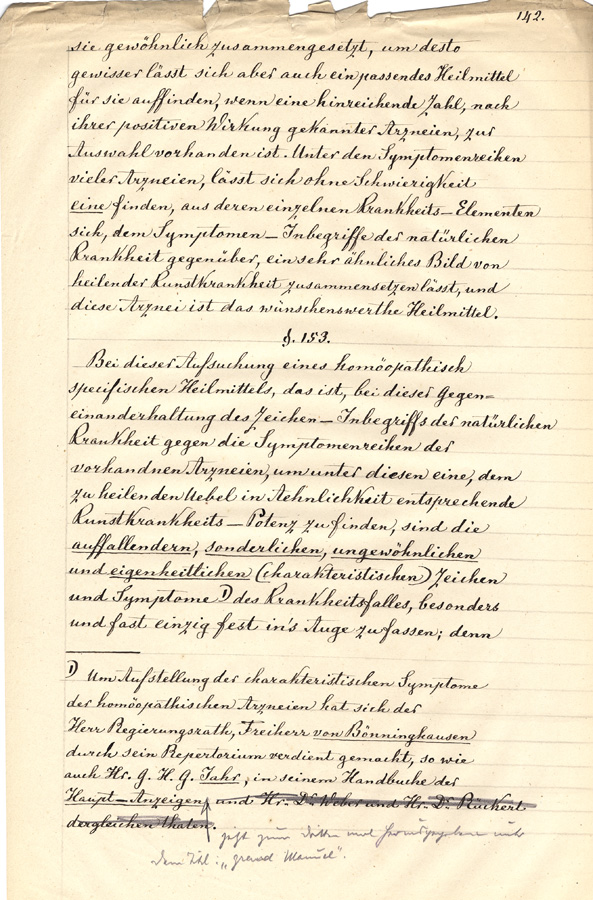 142.
sie gewöhnlich zusammengesetzt, um desto
gewisser lässt sich aber auch ein passendes Heilmittel
für sie auffinden, wenn eine hinreichende Zahl, nach
ihrer positiven Wirkung gekannter Arzneien, zur
Auswahl vorhanden ist. Unter den Symptomenreihen
vieler Arzneien, lässt sich ohne Schwierigkeit
eine finden, aus deren einzelnen Krankheits-Elementen
sich, dem Symptomen-Inbegriffe der natürlichen
Krankheit gegenüber, ein sehr ähnliches Bild von
heilender Kunstkrankheit zusammensetzen lässt, und
diese Arznei ist das wünschenswerthe Heilmittel.
§. 153.
Bei dieser Aufsuchung eines homöopathisch
specifischen Heilmittels, das ist, bei dieser Gegen=
einanderhaltung des Zeichen-Inbegriffs der natürlichen
Krankheit gegen die Symptomenreihen der
vorhandnen Arzneien, um unter diesen eine, dem
zu heilenden Uebel in Aehnlichkeit entsprechende
Kunstkrankheits-Potenz zu finden, sind die
auffallendern, sonderlichen, ungewöhnlichen
und eigenheitlichen (charakteristischen) Zeichen
und Symptome 1) des Krankheitsfalles, besonders
und fast einzig fest in's Auge zu fassen; denn
1) Um Aufstellung der charakteristischen Symptome
der homöopathischen Arzneien hat sich der
Herr Regierungsrath, Freiherr von Bönninghausen
durch sein Repertorium verdient gemacht, so wie
auch Hr. G. H. G. Jahr, in seinem Handbuche der
Haupt-Anzeigen, und Hr. Dr. und Hr. Dr. Rückert
dergleichen thaten.
jetzt zum dritten mal herausgegeben unter
dem Titel: „grand Manuel".